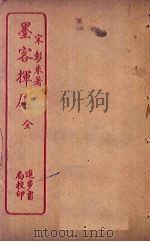 宋彭乘著
墨客揮犀 全
進步書
局校印